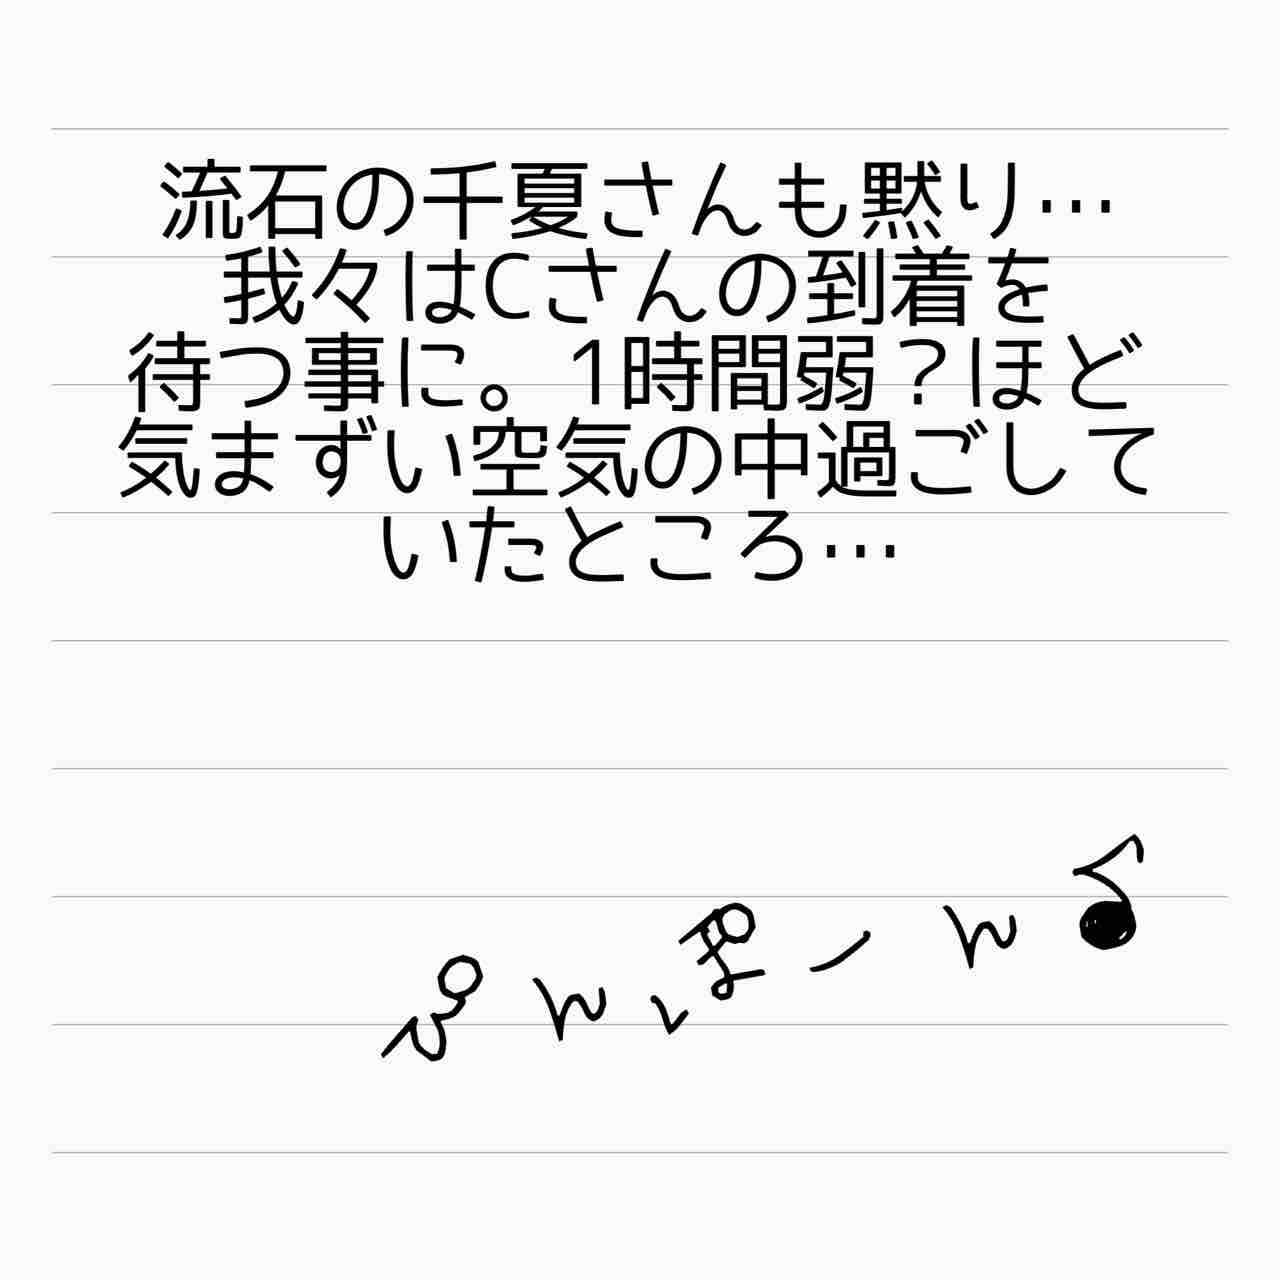 流石の千夏さんも黙り…
我々はCさんの到着を
待つ事に。1時間弱？ほど
気まずい空気の中過ごして
いたところ…
ぴんぽーん♪